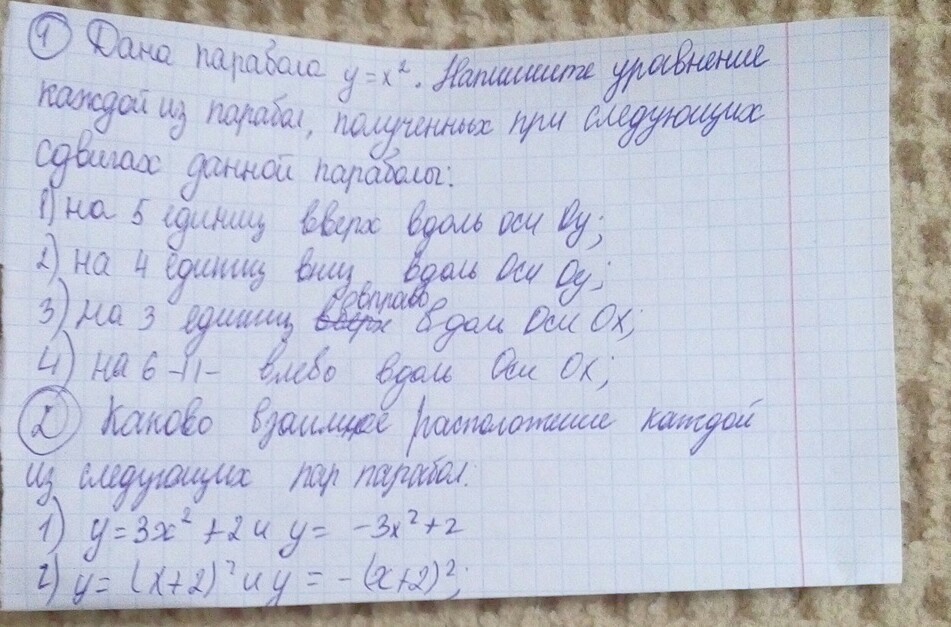 ① Дана парабола y=x². Напишите уравнение
каждой из парабол, полученных при следующих
сдвигах данной параболы:
1) на 5 единиц вверх вдоль оси Оу;
2) на 4 единиц вниз вдоль Оси Оу;
3) на 3 единиц вверх вправо вдоль Оси Ох;
4) на 6 -||- влево вдоль Оси Ох;
② Каково взаимное расположение каждой
из следующих пар парабол:
1) y=3x²+2 и y= -3x²+2
2) y= (x+2)² и y = -(x+2)²;